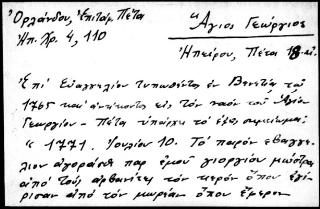 Ὀρλάνδου, Ἐπιτάφ. Πέτα
Ἠπ. Χρ. 4, 110
Ἅγιος Γεώργιος
Ἠπείρου, Πέτα 18 αἰ.
Ἐπὶ Εὐαγγελίου τυπωθέντος ἐν Βενετίᾳ τοῦ
1765 καὶ ἀνήκοντος εἰς τὸν ναὸν τοῦ Ἁγίου
Γεωργίου - Πέτα ὑπάρχει τὸ ἑξῆς σημείωμα:
"1771. Ἰουλίου 10. Τὸ παρὸν εβαγγέ-
λιον αγοράσθη παρ ἐμοῦ γιοργίου
απὸ τοὺς αρβανίτες τὸν κερὸν ὁπου εγύ-
ρισαν απὸ τὸν μωρέαν ὁπου ἔφερον